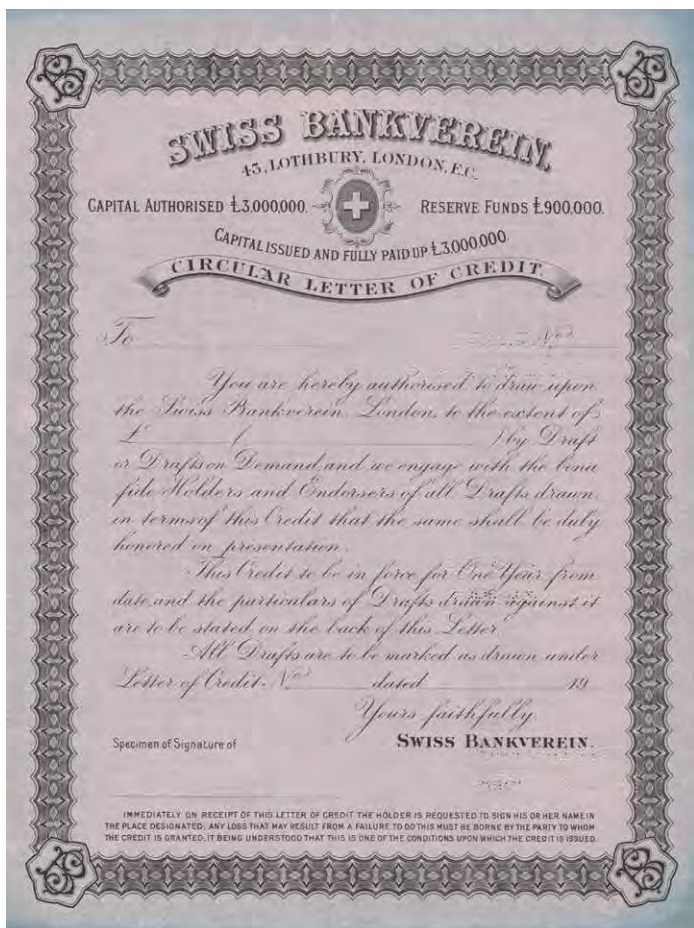 SWISS BANKVEREIN,
43, LOTHBURY, LONDON, E.C.
CAPITAL AUTHORISED £3,000,000. RESERVE FUNDS £900,000.
CAPITAL ISSUED AND FULLY PAID UP £3,000,000
CIRCULAR LETTER OF CREDIT.
To
No
You are hereby authorised to draw upon
the Swiss Bankverein, London, to the extent of
£ ( ) by Draft
or Drafts on Demand, and we engage with the bona
fide Holders and Endorsers of all Drafts drawn
in terms of this Credit that the same shall be duly
honored on presentation.
This Credit to be in force for One Year from
date, and the particulars of Drafts drawn against it
are to be stated on the back of this Letter.
All Drafts are to be marked as drawn under
Letter of Credit No dated 19
Yours faithfully,
Specimen of Signature of SWISS BANKVEREIN.
IMMEDIATELY ON RECEIPT OF THIS LETTER OF CREDIT THE HOLDER IS REQUESTED TO SIGN HIS OR HER NAME IN
THE PLACE DESIGNATED; ANY LOSS THAT MAY RESULT FROM A FAILURE TO DO THIS MUST BE BORNE BY THE PARTY TO WHOM
THE CREDIT IS GRANTED, IT BEING UNDERSTOOD THAT THIS IS ONE OF THE CONDITIONS UPON WHICH THE CREDIT IS ISSUED.